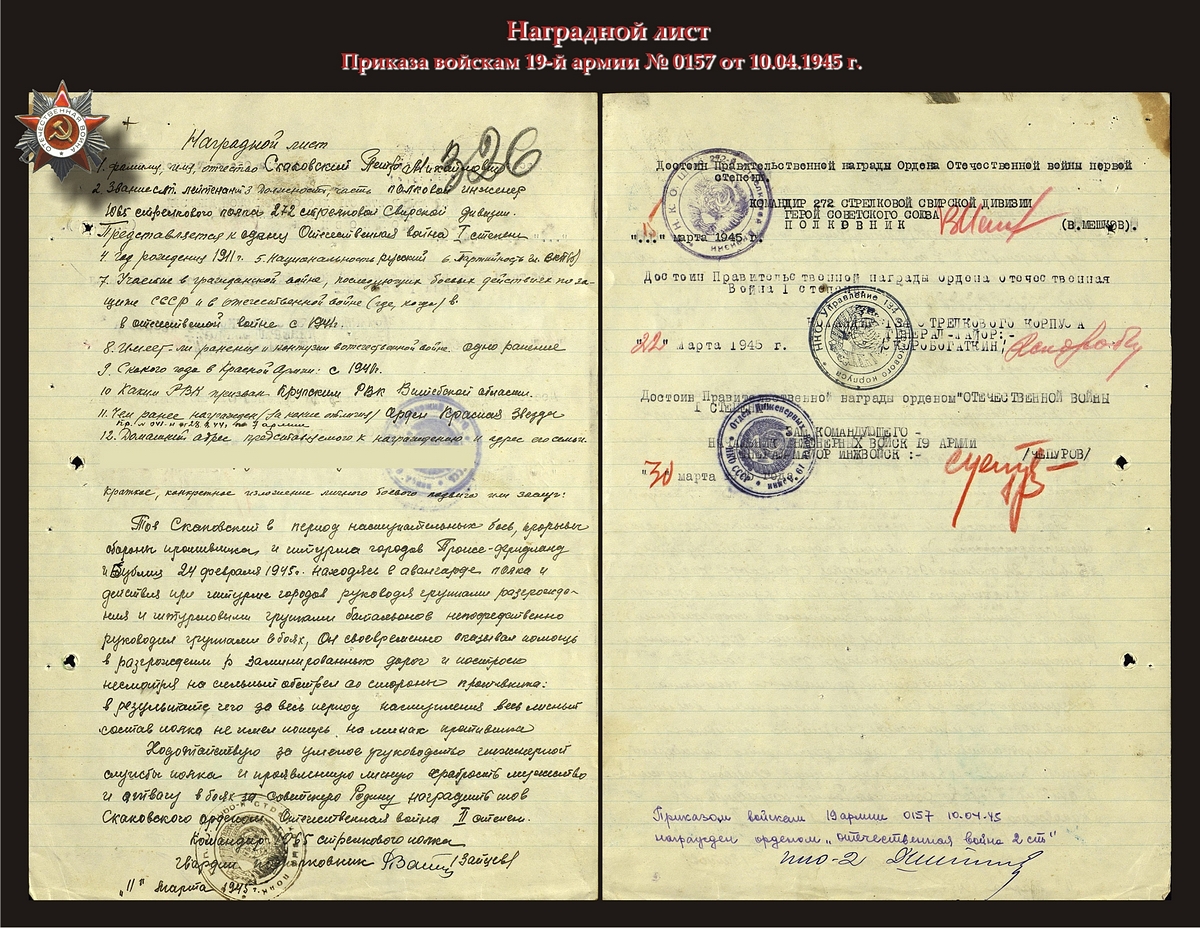 Наградной лист
Приказа войскам 19-й армии № 0157 от 10.04.1945 г.
ОТЕЧЕСТВЕННАЯ ВОЙНА
Наградной лист
326
1. фамилия, имя, отчество Скаковский Петр Михайлович
2. Звание ст. лейтенант 3 Должность, часть полковой инженер
1065 стрелкового полка 272 стрелковой Свирской дивизии.
Представляется к ордену Отечественная война I степени
4. Год рождения 1911 г. 5. Национальность русский 6. Партийность чл. ВКП(б)
7. Участие в гражданской войне, последующих боевых действиях по за-
щите СССР и в отечественной войне (где, когда) в.
в отечественной войне с 1941г.
8. Имеет-ли ранения и контузии в отечественной войне. одно ранение
9. С какого года в Красной Армии: с 1941г.
10 Каким РВК призван Крупским РВК Витебской области.
11. Чем ранее награжден (за какие отличия) Орден Красная Звезда
12. Домашний адрес представляемого к награждению и адрес его семьи.
Краткое, конкретное изложение личного боевого подвига или заслуг:
Тов Скаковский в период наступательных боев, прорывы
обороны противника, и штурма городов Прейс-Фридланд
и Бублиц 24 февраля 1945г. находясь в авангарде полка и
действуя при штурме городов руководя группами разгражде-
ния и штурмовыми группами батальонов непосредственно
руководил группами в боях, Он своевременно оказывал помощь
в разграждении заминированных дорог и
несмотря на сильный обстрел со стороны противника:
в результате чего за весь период наступления весь личный
состав полка не имел потерь на минах противника
Ходотайствую за умелое руководство инженерной
службы полка и проявленную личную храбрость мужество
и отвагу в боях за Советскую Родину наградить тов
Скаковского орденом Отечественная война II степени.
Командир 1065 стрелкового полка
гвардии подполковник (Зайцев)
"11" марта 1945г.
Достоин Правительственной награды Ордена Отечественной войны первой
степени.
КОМАНДИР 272 СТРЕЛКОВОЙ СВИРСКОЙ ДИВИЗИИ
ГЕРОЙ СОВЕТСКОГО СОЮЗА
ПОЛКОВНИК (В.МЕШКОВ).
"15" марта 1945 г.
Достоин Правительственной награды ордена Отечественная
Война I степени
134 СТРЕЛКОВОГО КОРПУСА
ГЕНЕРАЛ-МАЙОР:-
"22" марта 1945 г.
Достоин Правительственной награды орденом "ОТЕЧЕСТВЕННОЙ ВОЙНЫ
I СТЕПЕНИ
ЗАМ КОМАНДУЮЩЕГО -
НАЧАЛЬНИК ИНЖЕНЕРНЫХ ВОЙСК 19 АРМИИ
ГЕНЕРАЛ-МАЙОР ИНЖВОЙСК :- /ЧЕПУРОВ/
"30" марта
Приказом войскам 19 армии 0157 10.04.45
награжден орденом "отечественная война 2 ст"